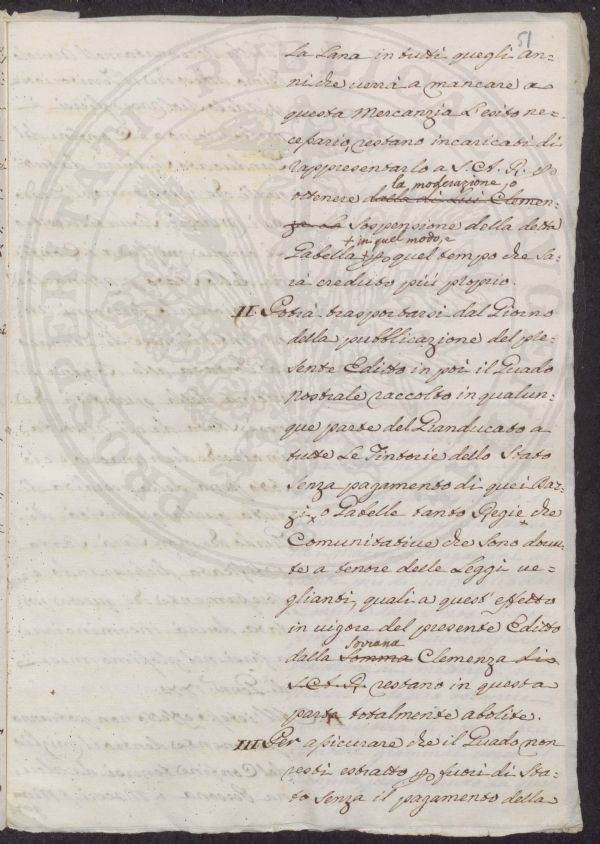 51
La Lana in tutti quegli An=
ni che verrà a mancare a
questa Mercanzia l'esito ne=
cessario, restano incaricati di
rappresentarlo a S. A. R. p
la moderazione, o
ottenere dalla di Lui Clemen=
za La Sospensione della detta
+ in quel modo, e
Gabella + p quel tempo che Sa=
rà creduto più proprio.
II. Potrà trasportarsi dal Giorno
della pubblicazione del pre=
sente Editto in poi il Guado
nostrale raccolto in qualun=
que parte del Granducato a
tutte Le Tintorie dello Stato
Senza pagamento di quei Daz=
zi, o Gabelle tanto Regie che
Comunitative che Sono dovu=
te a tenore delle Leggi ve=
glianti, quali a quest'effetto
in vigore del presente Editto
Sovrana
dalla Somma Clemenza di
S. A. R. restano in questa
parte totalmente abolite.
III. Per assicurare che il Guado non
resti estratto p fuori di Sta=
to Senza il pagamento della
PROSPERITATI PUBLICAE